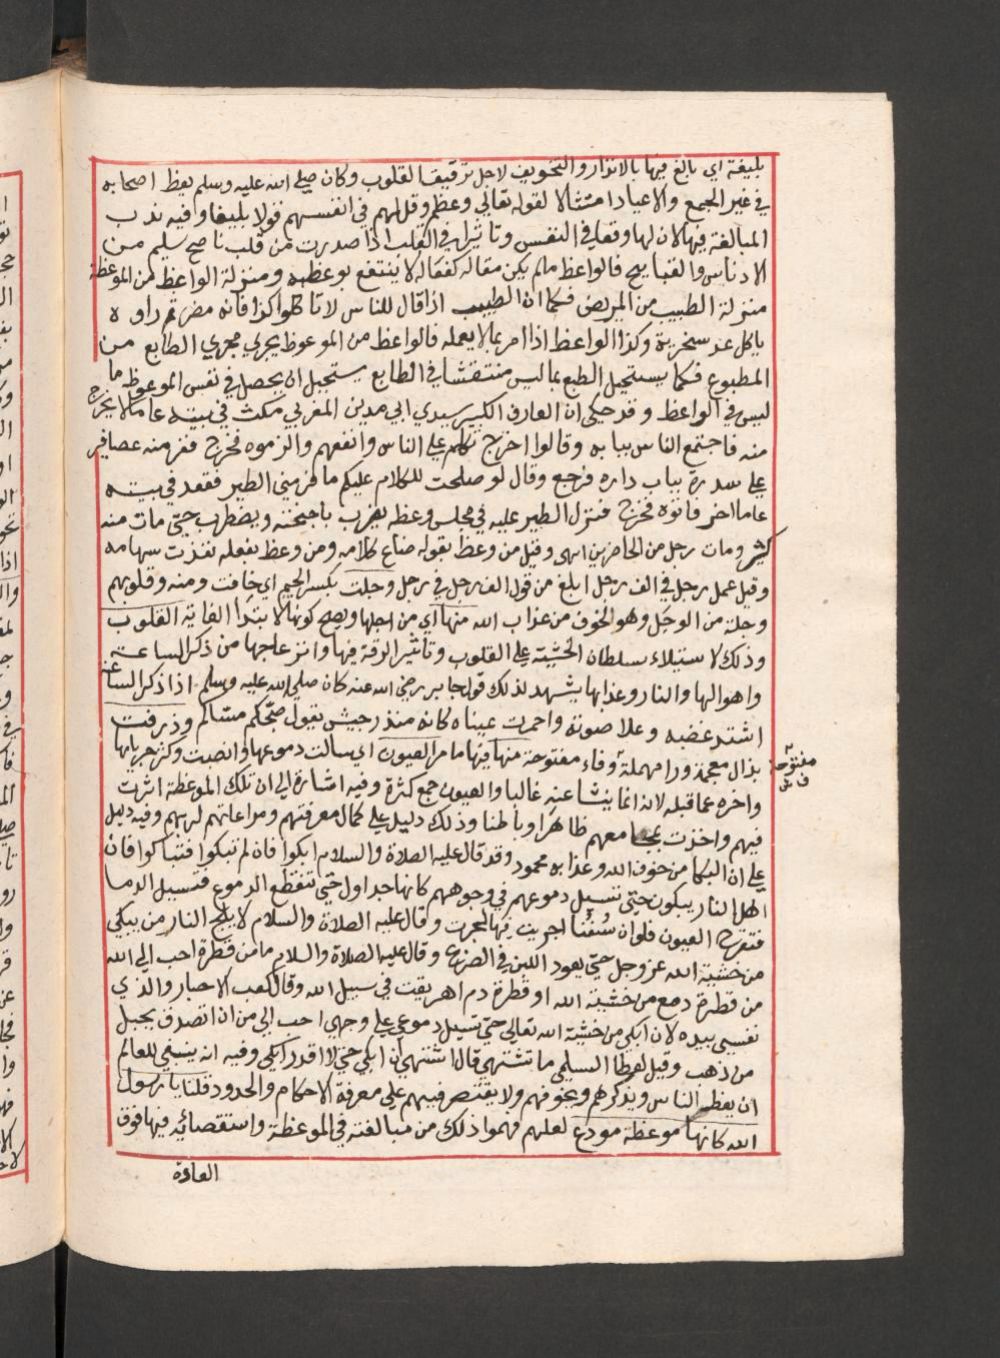 بليغة اي بالغ فيها بالانذار والتخويف لاجل ترقيق القلوب وكان صلي الله عليه وسلم يعظ اصحابه
في غير الجمع والاعياد امتثالا لقوله تعالي وعظهم وقل لهم في انفسهم قولا بليغا وفيه ندب
المبالغة فيها لان لها وقعا في النفس وتاثيرا في القلب اذا صدرت من قلب ناصح سليم من
الادناس والقبايح فالواعظ مالم يكن مقاله كفعاله لا ينتفع بوعظه ومنزلة الواعظ من الموعظة
منزلة الطبيب من المريض فكما ان الطبيب اذا قال للناس لا تاكلوا كذا فانه مضر ثم راوه
ياكل عد سخرية وكذا الواعظ اذا امر بما لا يعمله فالواعظ من الموعوظ يجري مجري الطابع من
المطبوع فكما يستحيل الطبع بما ليس منتقشا في الطابع يستحيل ان يحصل في نفس الموعوظ ما
ليس في الواعظ وقد حكي ان العارف الكبير سيدي ابي مدين المغربي مكث في بيته عاما لا يخرج
منه فاجتمع الناس ببابه وقالوا اخرج تكلم علي الناس وانفعهم والزموه فخرج ففر منه عصافير
علي سدرة بباب داره فرجع وقال لو صلحت للكلام عليكم ما فر مني الطير فقعد في بيته
عاما اخر فاتوه فخرج فنزل الطير عليه في مجلس وعظه يضرب باجنحته ويضطرب حتي مات منه
كثير ومات رجل من الحاضرين انتهي وقيل من وعظ بقوله ضاع كلامه ومن وعظ بفعله نفذت سهامه
وقيل عمل رجل في الف رجل ابلغ من قول الف رجل في رجل وجلت بكسر الجيم اي خافت ومنه وقلوبهم
وجلة من الوجل وهو الخوف من عذاب الله منها اي من اجلها ويصح كونها لابتدا الغاية القلوب
وذلك لاستيلاء سلطان الخشية علي القلوب وتاثير الرقة فيها وانزعاجها من ذكر الساعة
واهوالها والنار وعذابها يشهد لذلك قول جابر رضي الله عنه كان صلي الله عليه وسلم اذا ذكر الساعة
اشتد غضبه وعلا صوته واحمرت عيناه كانه منذر جيش يقول صبحكم مساكم وذرفت
بذال معجمة ورا مهملة وفاء مفتوحة منها فيها ما مر العيون اي سالت دموعها وانصبت وكثر جريانها
مفتوحة
واخره عما قبله لانه انما ينشا عنه غالبا والعيون جمع كثرة وفيه اشارة الي ان تلك الموعظة اثرت
فيهم واخذت بمجامعهم ظاهرا وباطنا وذلك دليل علي كمال معرفتهم ومراعاتهم لربهم وفيه دليل
علي ان البكا من خوف الله وعذابه محمود وقد قال عليه الصلاة والسلام ابكوا فان لم تبكوا فتباكوا فان
اهل النار يبكون حتي تسيل دموعهم في وجوههم كانها جداول حتي تنقطع الدموع فتسيل الدما
فتقرح العيون فلو ان سُفُنًا اجريت فيها لجرت وقال عليه الصلاة والسلام لا يلج النار من يبكي
من خشية الله عز وجل حتي يعود اللبن في الضرع وقال عليه الصلاة والسلام ما من قطرة احب الي الله
من قطرة دمع من خشية الله او قطرة دم اهريقت في سبيل الله وقال كعب الاحبار والذي
نفسي بيده لان ابكي من خشية الله تعالي حتي تسيل دموعي علي وجهي احب الي من ان اتصدق بجبل
من ذهب وقيل لعطا السليمي ما تشتهي قال اشتهي ان ابكي حتي لا اقدر ابكي وفيه انه ينبغي للعالم
ان يعظ الناس ويذكرهم ويخوفهم ولا يقتصر فيهم علي معرفة الاحكام والحدود قلنا يا رسول
الله كانها موعظة مودع لعلهم فهموا ذلك من مبالغته في الموعظة واستقصائه فيها فوق
العادة